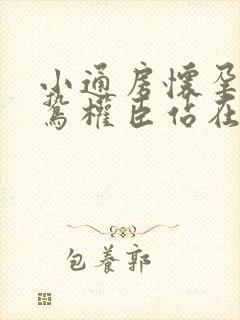 小通房懷孕
鷙權臣佔在
包養郭